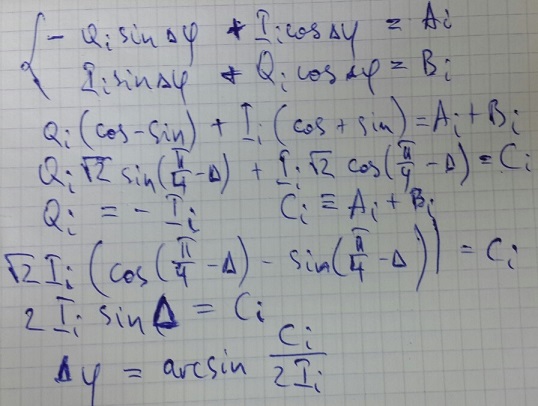 { - Qᵢ sin Δφ + Iᵢ cos Δφ = Aᵢ
Iᵢ sin Δφ + Qᵢ cos Δφ = Bᵢ
Qᵢ (cos - sin) + Iᵢ (cos + sin) = Aᵢ + Bᵢ
Qᵢ √2 sin(π/4 - Δ) + Iᵢ √2 cos(π/4 - Δ) = Cᵢ
Qᵢ = - Iᵢ Cᵢ ≡ Aᵢ + Bᵢ
√2 Iᵢ (cos(π/4 - Δ) - sin(π/4 - Δ)) = Cᵢ
2 Iᵢ sin Δ = Cᵢ
Δφ = arcsin Cᵢ / 2Iᵢ